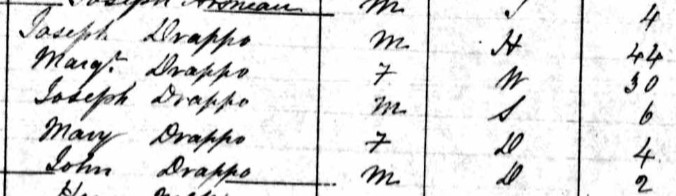 Joseph Arsneau m S 4
Joseph Drappo m H 44
Margt. Drappo F W 30
Joseph Drappo m S 6
Mary Drappo F D 4
John Drappo m D 2